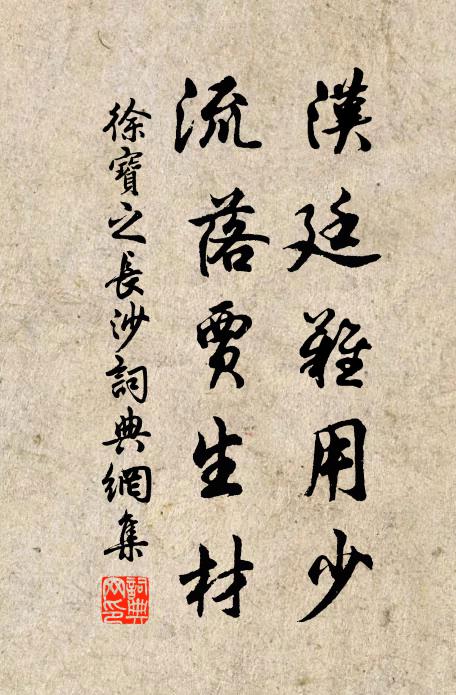 漢廷難用少
流落賈生材
徐寶之長沙詞典網集
詞典网印